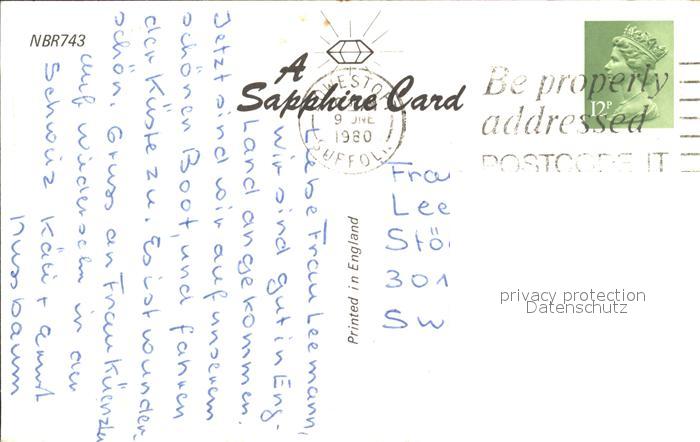 NBR743
A
Sapphire Card
LOWESTOFT
9 JNE
1980
SUFFOLK
Be properly
addressed
POSTCODE IT
12P
Printed in England
Liebe Frau Leemann,
wir sind gut in Eng-
Land angekommen.
Jetzt sind wir auf unserem
schönen Boot, und fahren
der Küste zu. Es ist wunder-
schön. Gruss an Frau Küenzler
auf wiedersehn in der
Schweiz Käti + Ernst
Nussbaum
Frau
Lee
Stö
301
Sw
privacy protection
Datenschutz